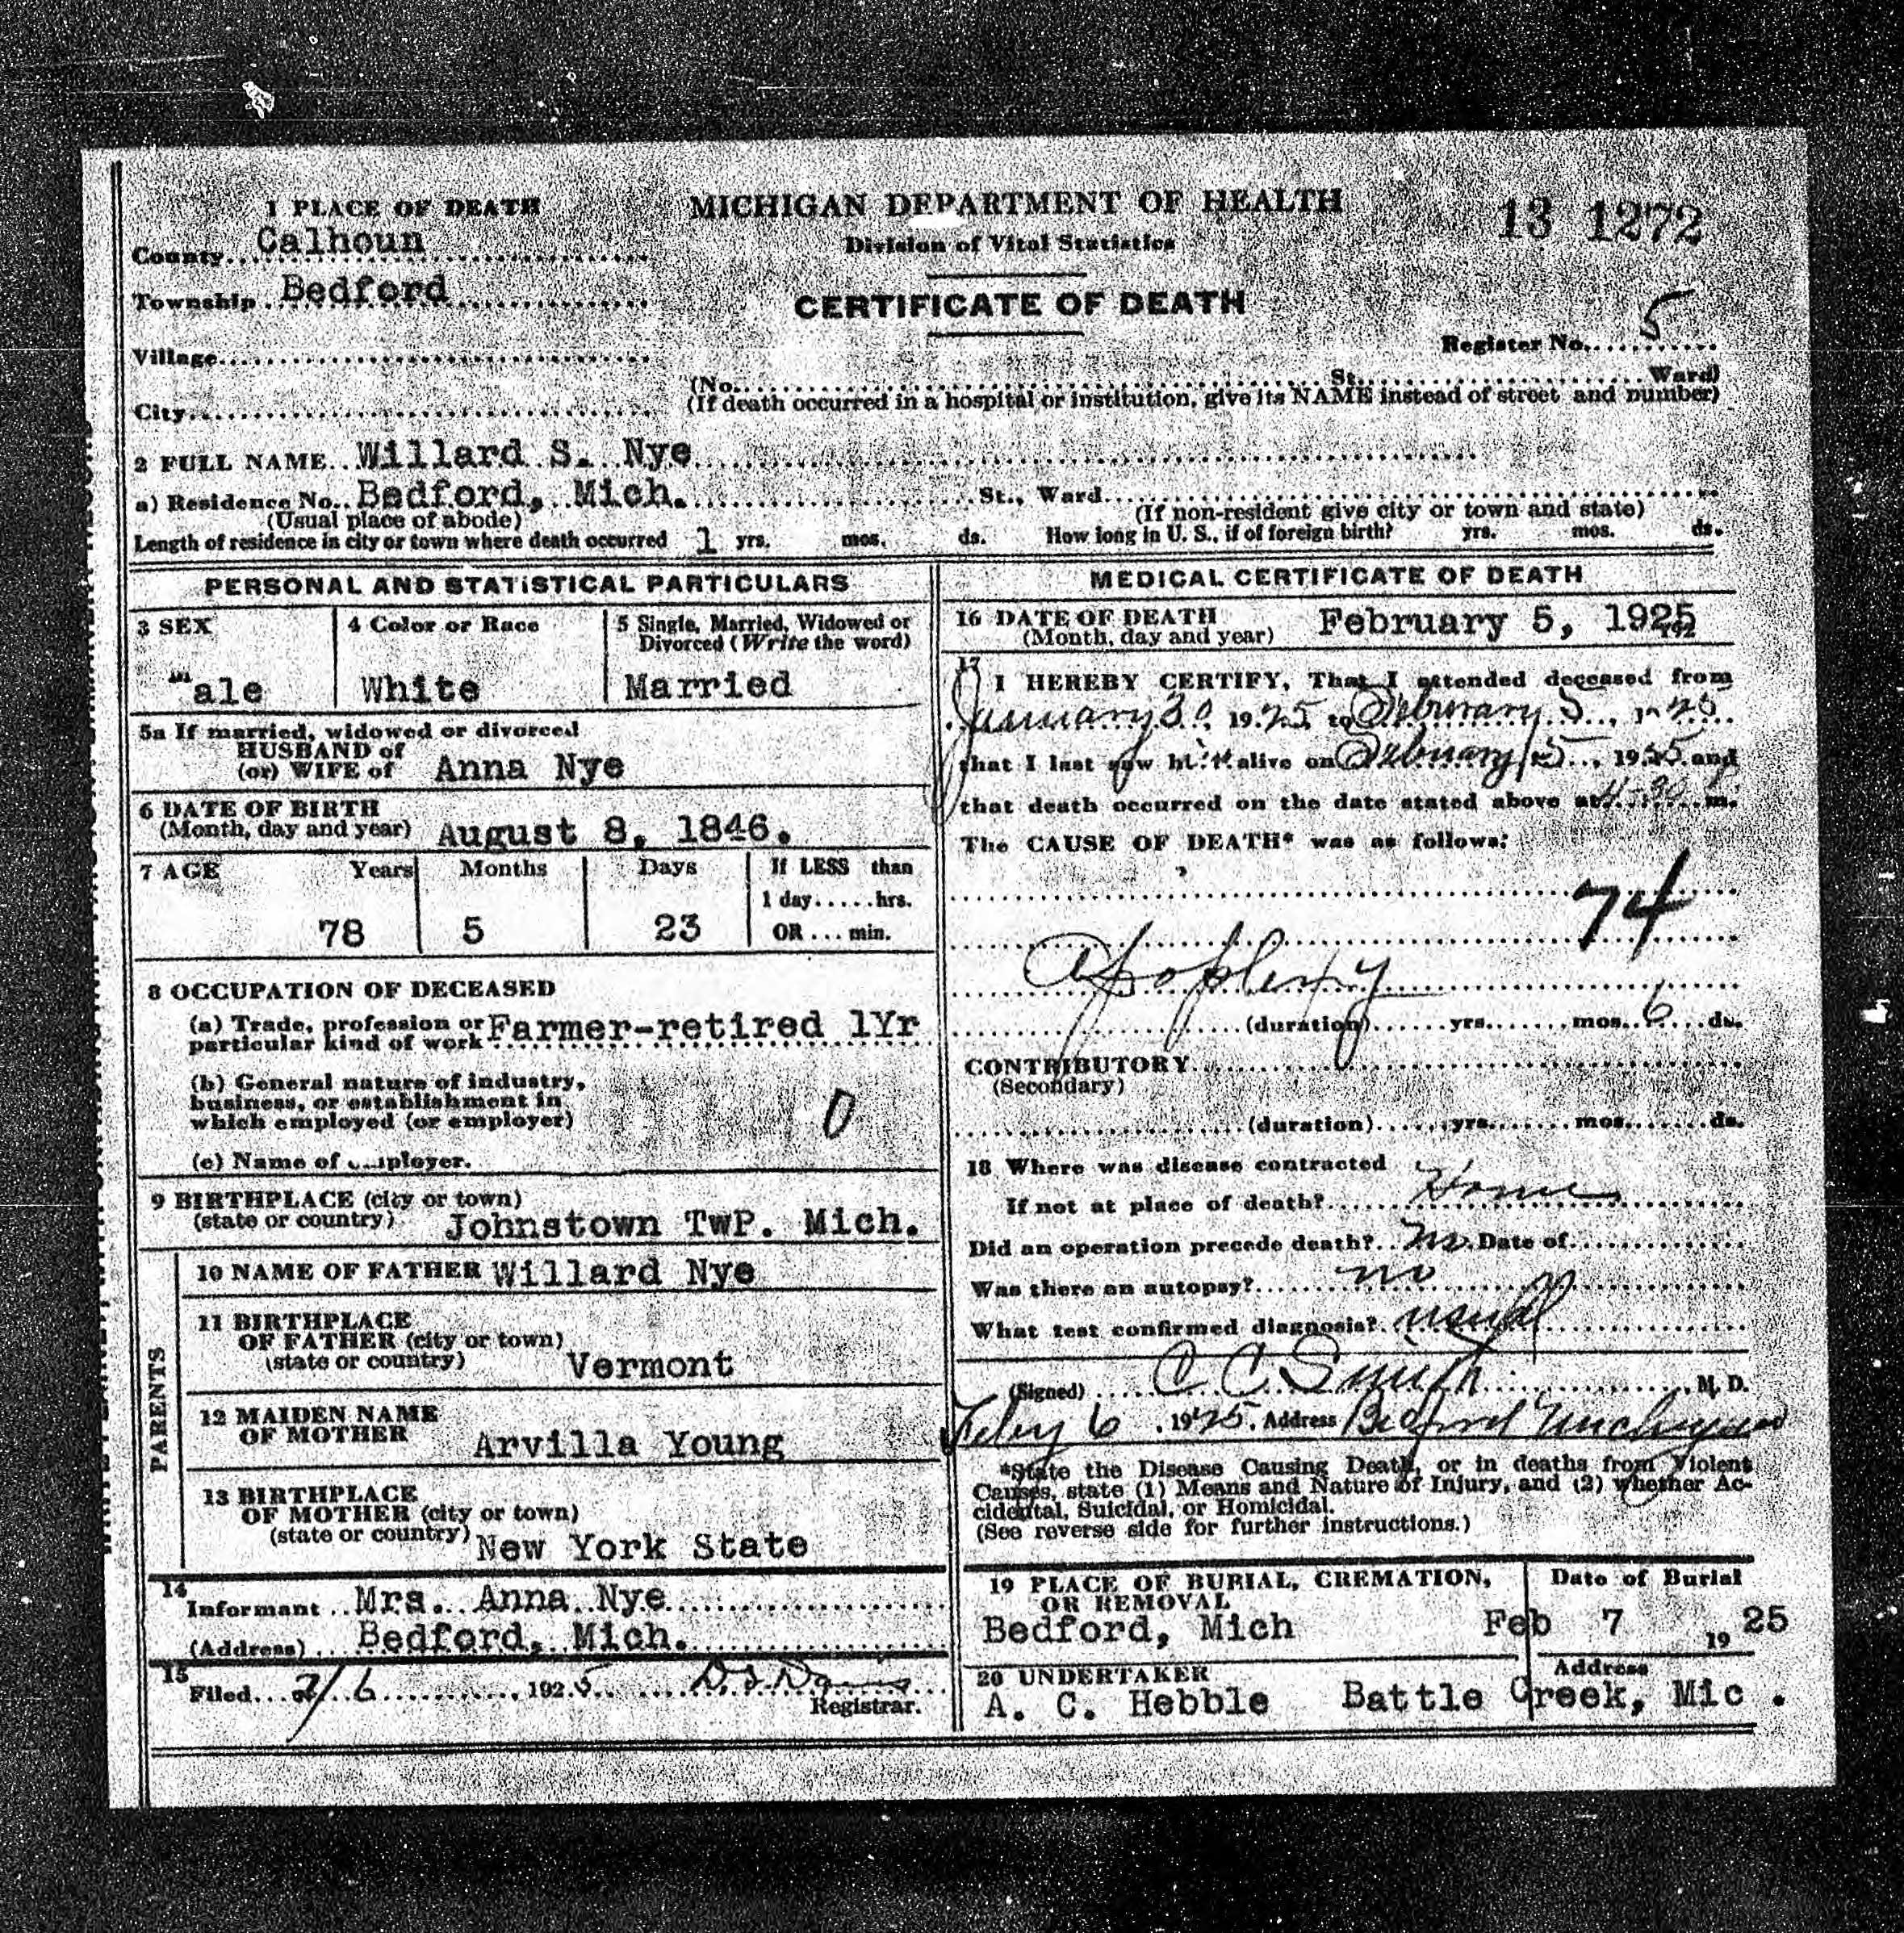 1 PLACE OF DEATH
MICHIGAN DEPARTMENT OF HEALTH
13 1272
County Calhoun
Division of Vital Statistics
Township Bedford
CERTIFICATE OF DEATH
Register No. 5
Village
(No. St. Ward)
City (If death occurred in a hospital or institution, give its NAME instead of street and number)
2 FULL NAME Willard S. Nye
a) Residence No. Bedford, Mich. St., Ward
(Usual place of abode) (If non-resident give city or town and state)
Length of residence in city or town where death occurred 1 yrs. mos. ds. How long in U. S., if of foreign birth? yrs. mos. ds.
PERSONAL AND STATISTICAL PARTICULARS
3 SEX
Male
4 Color or Race
White
5 Single, Married, Widowed or
Divorced (Write the word)
Married
5a If married, widowed or divorced
HUSBAND of
(or) WIFE of Anna Nye
6 DATE OF BIRTH
(Month, day and year) August 8, 1846.
7 AGE Years Months Days If LESS than
1 day.....hrs.
78 5 23 OR ... min.
8 OCCUPATION OF DECEASED
(a) Trade, profession or
particular kind of work Farmer-retired 1Yr
(b) General nature of industry,
business, or establishment in
which employed (or employer) 0
(c) Name of employer.
9 BIRTHPLACE (city or town)
(state or country) Johnstown TwP. Mich.
PARENTS
10 NAME OF FATHER Willard Nye
11 BIRTHPLACE
OF FATHER (city or town)
(state or country) Vermont
12 MAIDEN NAME
OF MOTHER Arvilla Young
13 BIRTHPLACE
OF MOTHER (city or town)
(state or country) New York State
14
Informant Mrs. Anna Nye
(Address) Bedford, Mich.
15
Filed 2/6, 1925
Registrar.
MEDICAL CERTIFICATE OF DEATH
16 DATE OF DEATH
(Month, day and year) February 5, 1925
192
17
I HEREBY CERTIFY, That I attended deceased from
January 30, 1925, to February 5, 1925
that I last saw him alive on February 5, 1925 and
that death occurred on the date stated above at 4-30 P m.
The CAUSE OF DEATH* was as follows:
74
Apoplexy
(duration) yrs. mos. 6 ds.
CONTRIBUTORY
(Secondary)
(duration) yrs. mos. ds.
18 Where was disease contracted
If not at place of death? Home
Did an operation precede death? No Date of
Was there an autopsy? no
What test confirmed diagnosis? usual
(Signed) C C Smith, M. D.
Feby 6, 1925. Address Bedford Michigan
*State the Disease Causing Death, or in deaths from Violent
Causes, state (1) Means and Nature of Injury, and (2) whether Ac-
cidental, Suicidal, or Homicidal.
(See reverse side for further instructions.)
19 PLACE OF BURIAL, CREMATION,
OR REMOVAL
Bedford, Mich
Date of Burial
Feb 7 19 25
20 UNDERTAKER
A. C. Hebble
Address
Battle Creek, Mic .